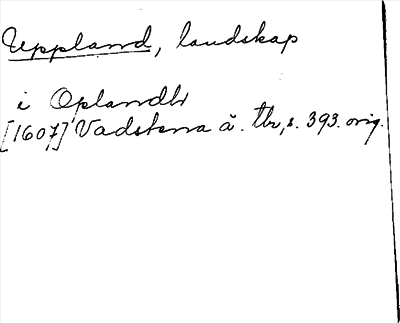 Uppland, landskap
i Oplandh
[1607] Vadstena ä. tb, s. 393. orig.